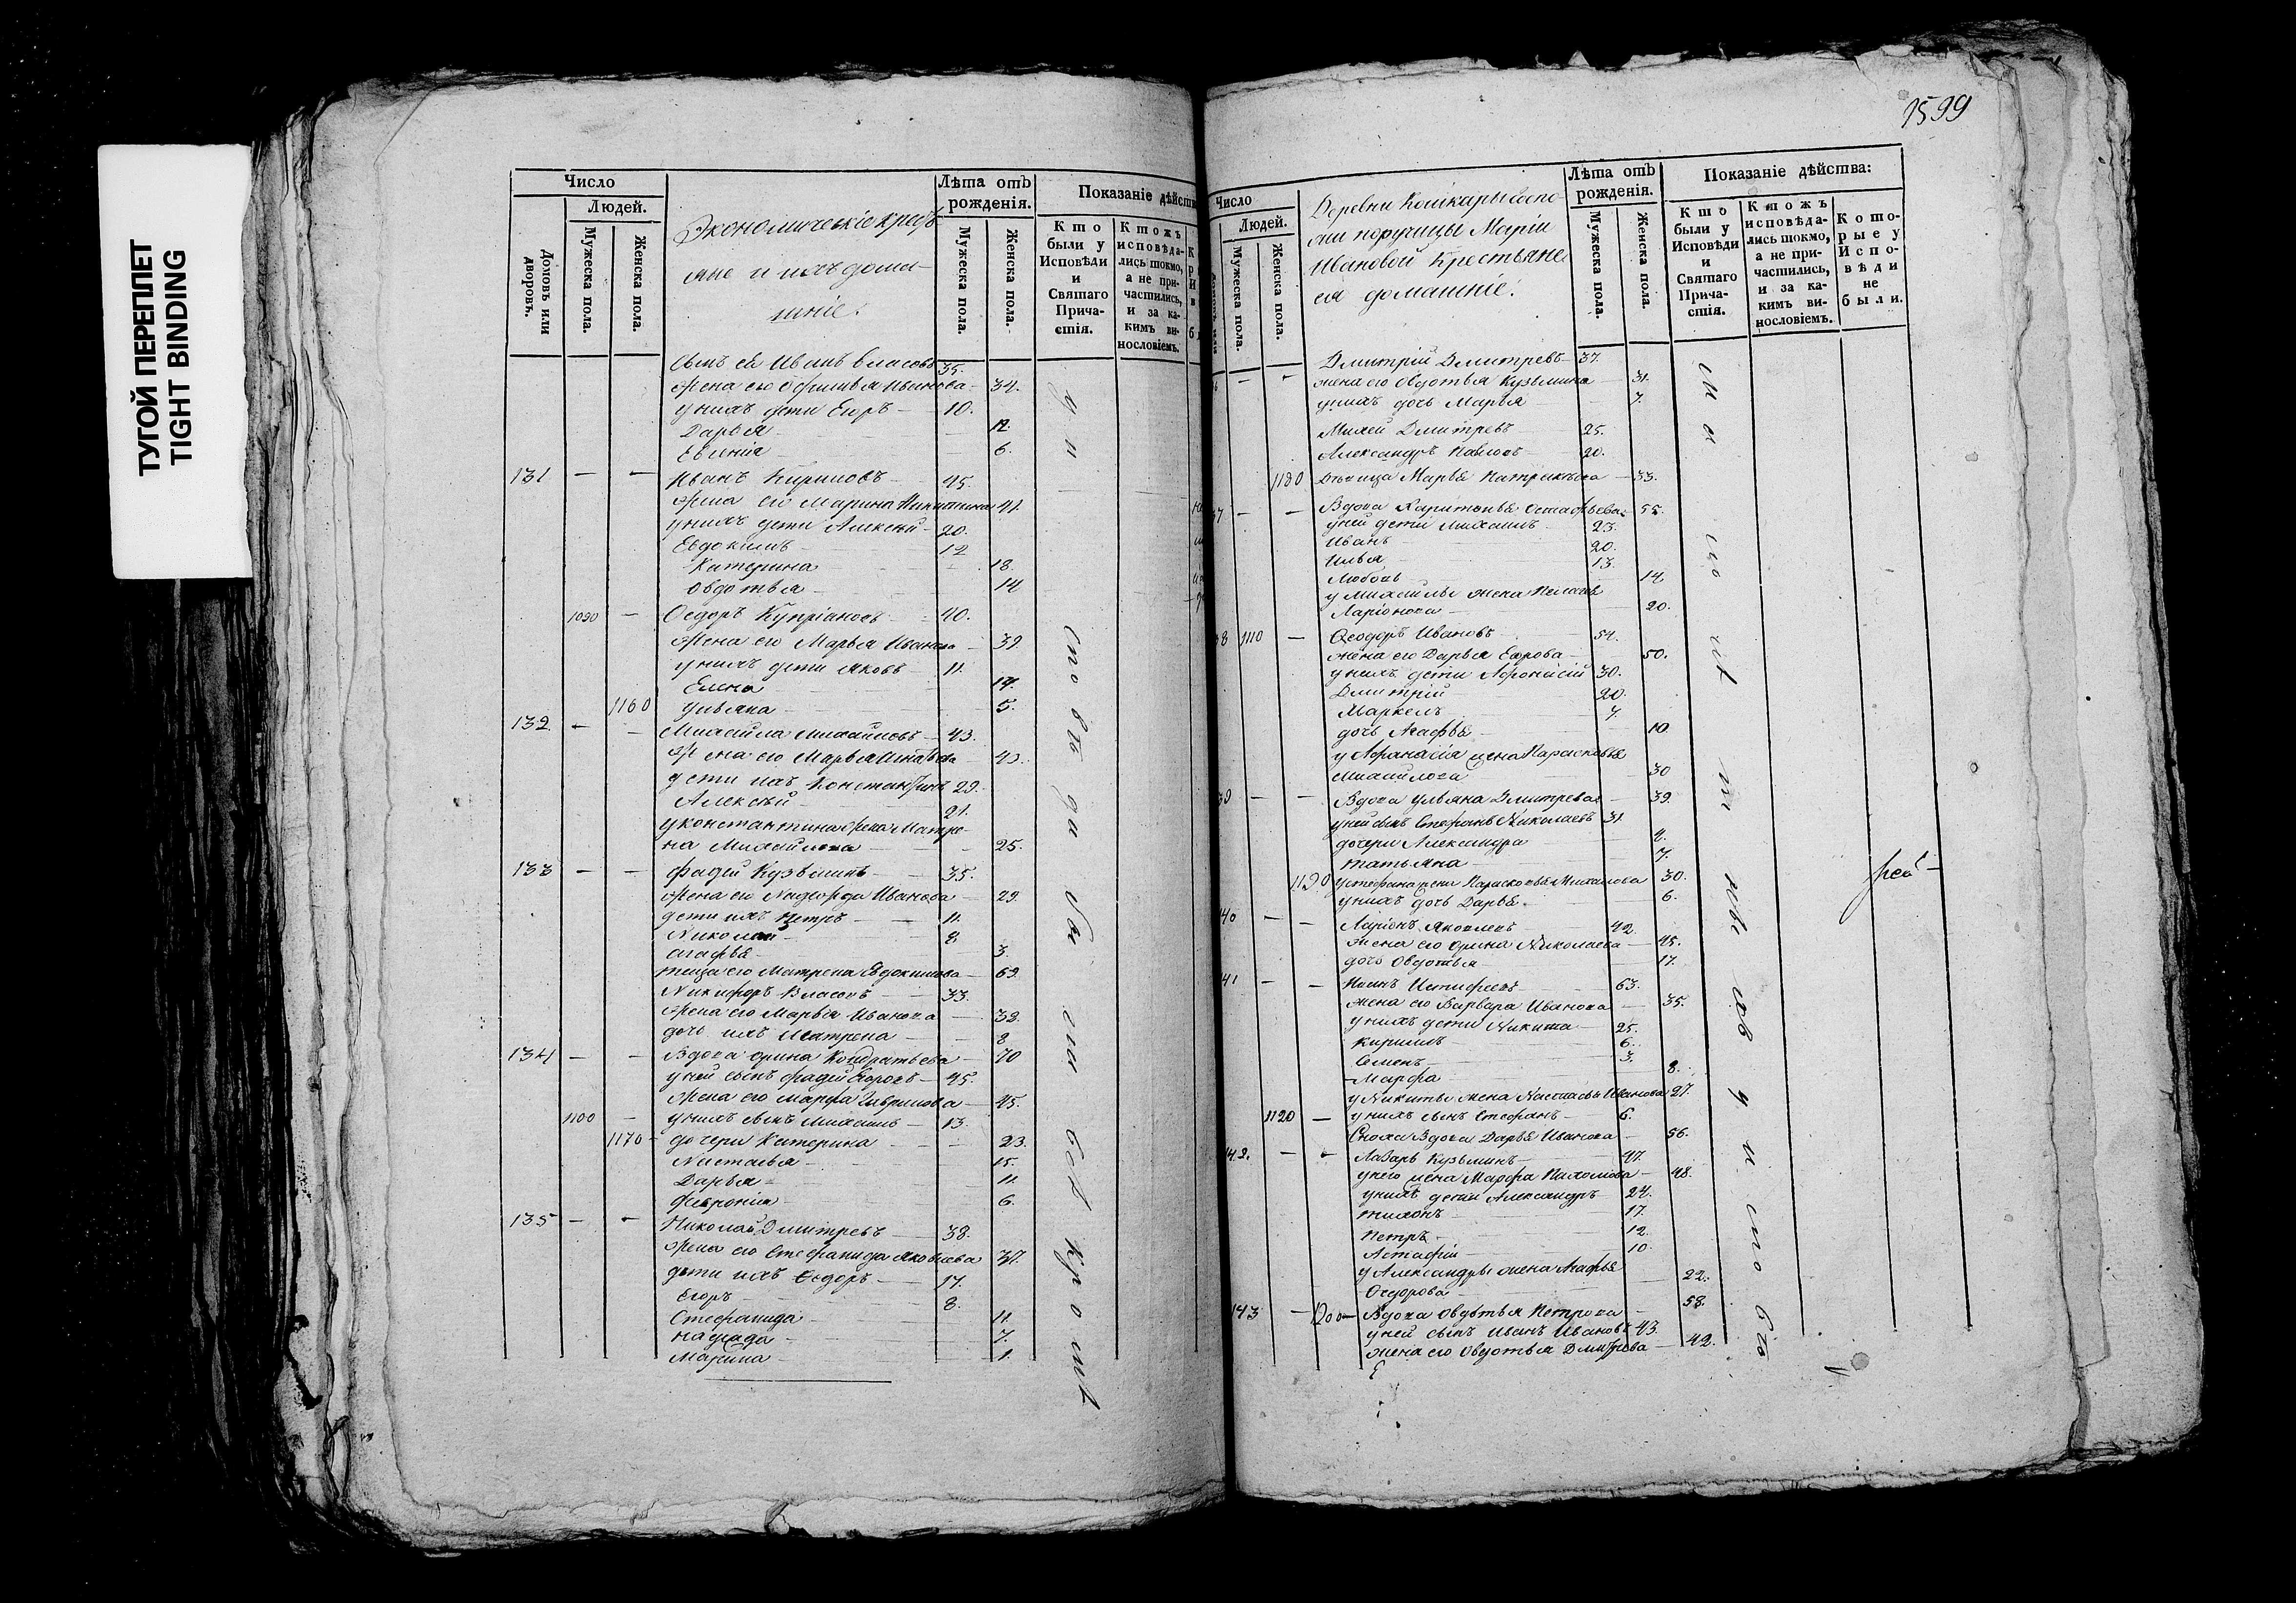 ТУГОЙ ПЕРЕПЛЕТ
TIGHT BINDING
Число
Людей.
Домовъ или дворовъ.
Мужеска пола.
Женска пола.
Экономическіе
и ихъ дома-
шніе:
Лѣта отъ рожденія.
Мужеска пола.
Женска пола.
Показаніе дѣйств
Кто были у Исповѣди и Святаго Причастія.
Ктожъ исповѣдались токмо, а не причастились, и за какимъ винословіемъ.
Сынъ ея Иванъ Власовъ 35.
жена его Офимья Иванова 34.
у нихъ дети Егоръ 10.
Дарья 12.
Евгенія 6.
131 — — Иванъ Кириловъ 45.
жена его Марина Никитина 41.
у нихъ дети Алексѣй 20.
Евдокимъ 12
Катерина 18.
Овдотья 14
1090 — Ѳедоръ Купріановъ 40.
жена его Марья Иванова 39
у нихъ дети Яковъ 11.
Елена 14.
1160 Ульяна 5.
132 — — Михайла Михайловъ 43.
жена его Марья Игнатьева 43.
дети ихъ Константинъ 29.
Алексѣй 21.
у Константина жена Матре-
на Михайлова 25.
133 — — Фадей Кузьминъ 35.
жена его Иванова 29.
дети ихъ Петръ 11.
Николай 8.
Агафья 3.
теща его Матрена Евдокимова 69.
Никифоръ Власовъ 33.
жена его Марья Иванова 32.
дочь ихъ Матрена 8
134 — — Вдова Орина Кондратьева 70
у ней сынъ Фадей Егоровъ 45.
жена его Марфа Гаврилова 45.
1100 — у нихъ сынъ Михаилъ 13.
1170 — дочери Катерина 23.
Настасья 15.
Дарья 11.
Феврония 6.
135 — — Николай Дмитревъ 38.
жена его Стефанида Яковлева 37.
дети ихъ Ѳедоръ 17.
Егоръ 8.
Стефанида 11.
Надежда 7.
Марина 1.
1599
Число
Людей.
Мужеска пола.
Женска пола.
Деревни Кошкары Госпо-
жи порутчицы Маріи
Ивановой Крестьяне
домашніе:
Лѣта отъ рожденія.
Мужеска пола.
Женска пола.
Показаніе дѣйства:
Кто были у Исповѣди и Святаго Причастія.
Ктожъ исповѣдались токмо, а не причастились, и за какимъ винословіемъ.
Которые у Исповѣди не были.
Дмитрій Дмитревъ 37.
6 — — жена его Овдотья Кузьмина 31.
у нихъ дочь Марья 7.
Михей Дмитревъ 25.
Александръ Павловъ 20.
1180 Дѣвица Марья 33.
37 — — Вдова Харитонья Остафьева 55.
у ней дети Михаилъ 23.
Иванъ 20.
Илья 13.
Любовь 14.
у Михаилы жена Пелагея
Ларіонова 20.
38 1110 — Ѳеодоръ Ивановъ 54.
жена его Дарья Егорова 50.
у нихъ дети Афонасій 30.
Дмитрій 20.
Маркелъ 7.
дочь Агафья 10
у Афанасія жена Парасковья
Михайлова 30
39 — — Вдова Ульяна Дмитрева 39.
у ней сынъ Стефанъ Николаевъ 31
дочери Александра
Татьяна 7.
1190 у Стефана жена Парасковья Михайлова 30.
у нихъ дочь Дарья 6.
140 — — Ларіонъ Яковлевъ 42.
жена его Орина Николаева 45.
дочь Овдотья 17.
141 — — Иванъ 63.
жена его Варвара Иванова 35.
у нихъ дети Никита 25.
Кирилъ 6.
Семенъ 3.
Марфа 8.
у Никиты жена Настасья Иванова 27.
1120 — у нихъ сынъ Стефанъ 6.
Сноха вдова Дарья Иванова 56.
142. — — Лазарь Кузьминъ 47.
у него жена Марфа Пахомова 48.
у нихъ дети Александръ 24.
Тихонъ 17.
Петръ 12.
Астафій 10.
у Александры жена Агафья
Ѳедорова 22.
143 — 1200 — Вдова Овдотья Петрова 58.
у ней сынъ Иванъ Ивановъ 43.
жена его Овдотья Дмитрева 42.